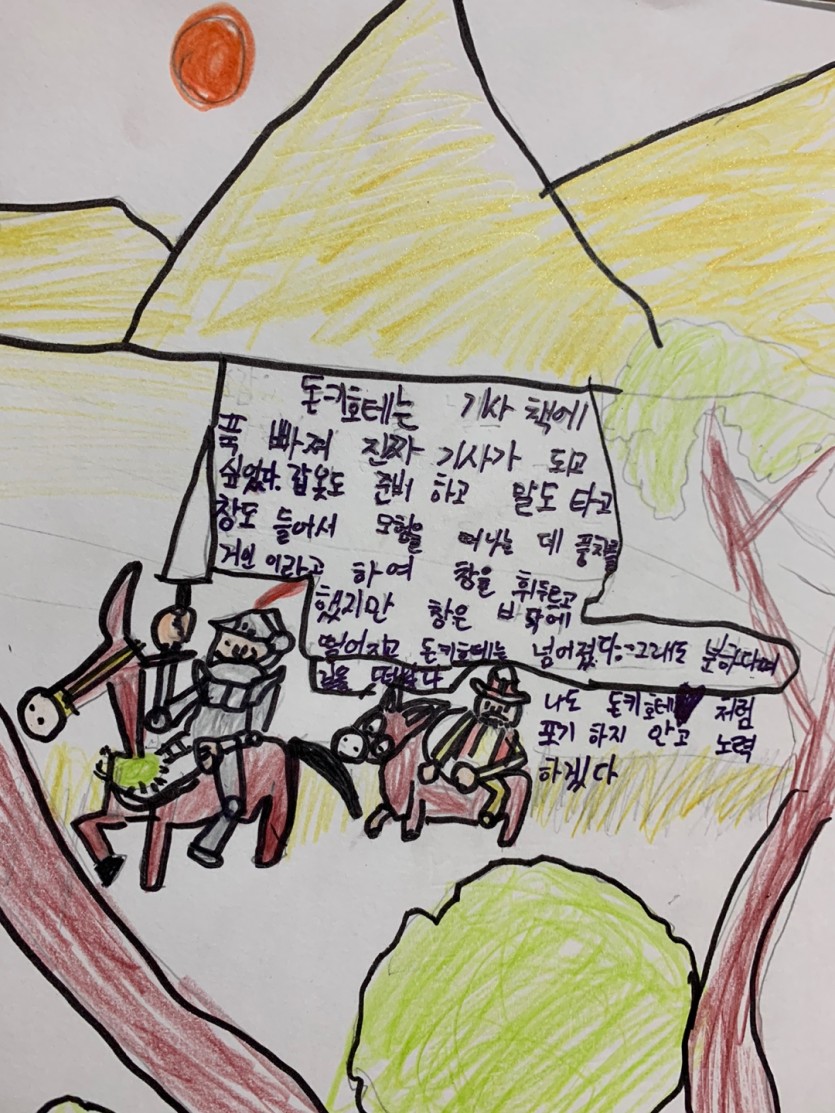 돈키호테는 기사 책에
푹 빠져 진짜 기사가 되고
싶었다. 갑옷도 준비 하고 말도 타고
창도 들어서 모험을 떠나는 데 풍차를
거인 이라고 하여 창을 휘두르고
했지만 창은 바닥에
떨어지고 돈키호테는 넘어졌다. 그래도 분하다며
길을 떠났다
나도 돈키호테 처럼
포기 하지 안고 노력
하겠다